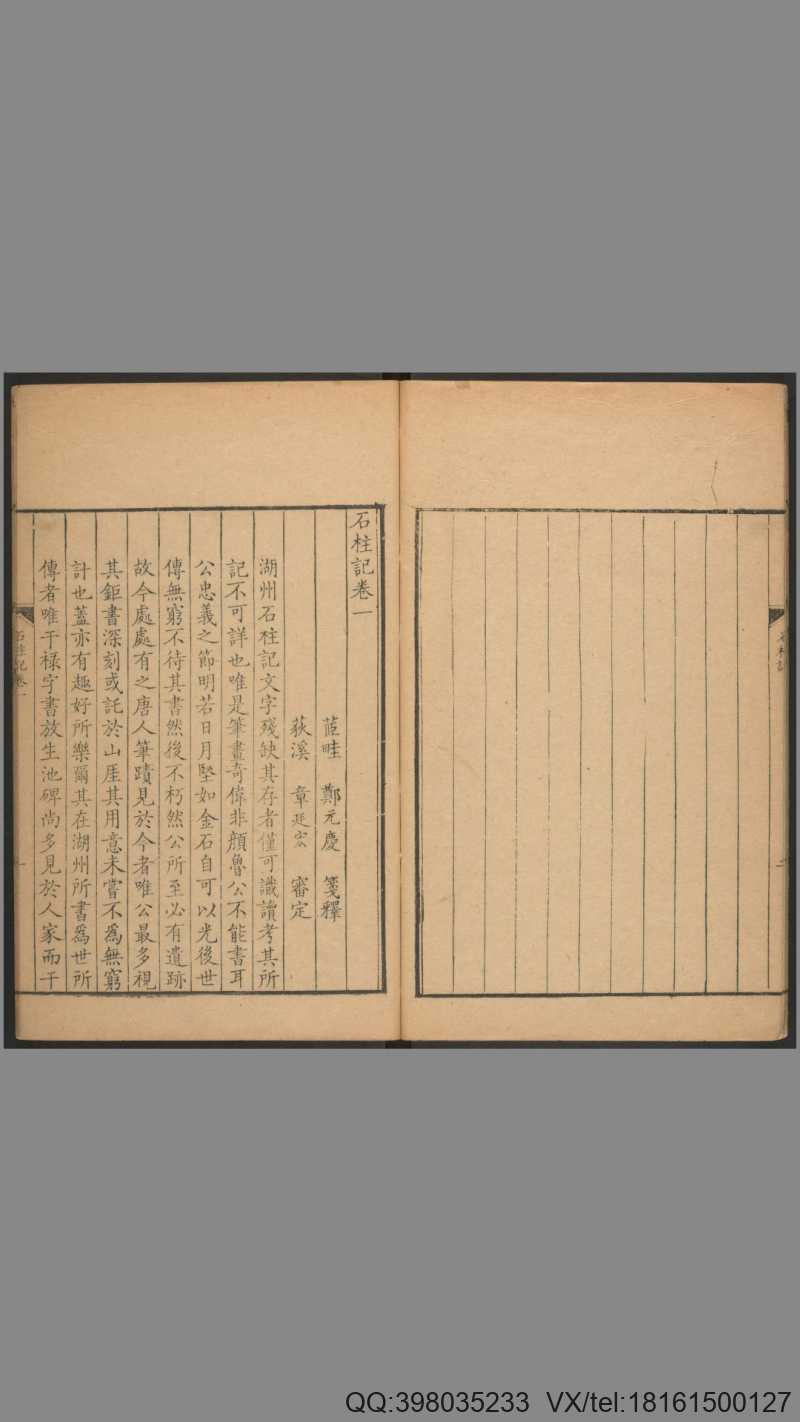 石柱記
石柱記卷一
鄭元慶 箋釋
荻溪 章廷宏 審定
湖州石柱記文字殘缺其存者僅可識讀考其所
記不可詳也唯是筆畫奇偉非顏魯公不能書耳
公忠義之節明若日月堅如金石自可以光後世
傳無窮不待其書然後不朽然公所至必有遺跡
故今處處有之唐人筆蹟見於今者唯公最多視
其鉅書深刻或託於山厓其用意未嘗不爲無窮
計也蓋亦有趣好所樂爾其在湖州所書爲世所
傳者唯干祿字書放生池碑尚多見於人家而干
石柱記卷一
一
QQ:398035233 VX/tel:18161500127